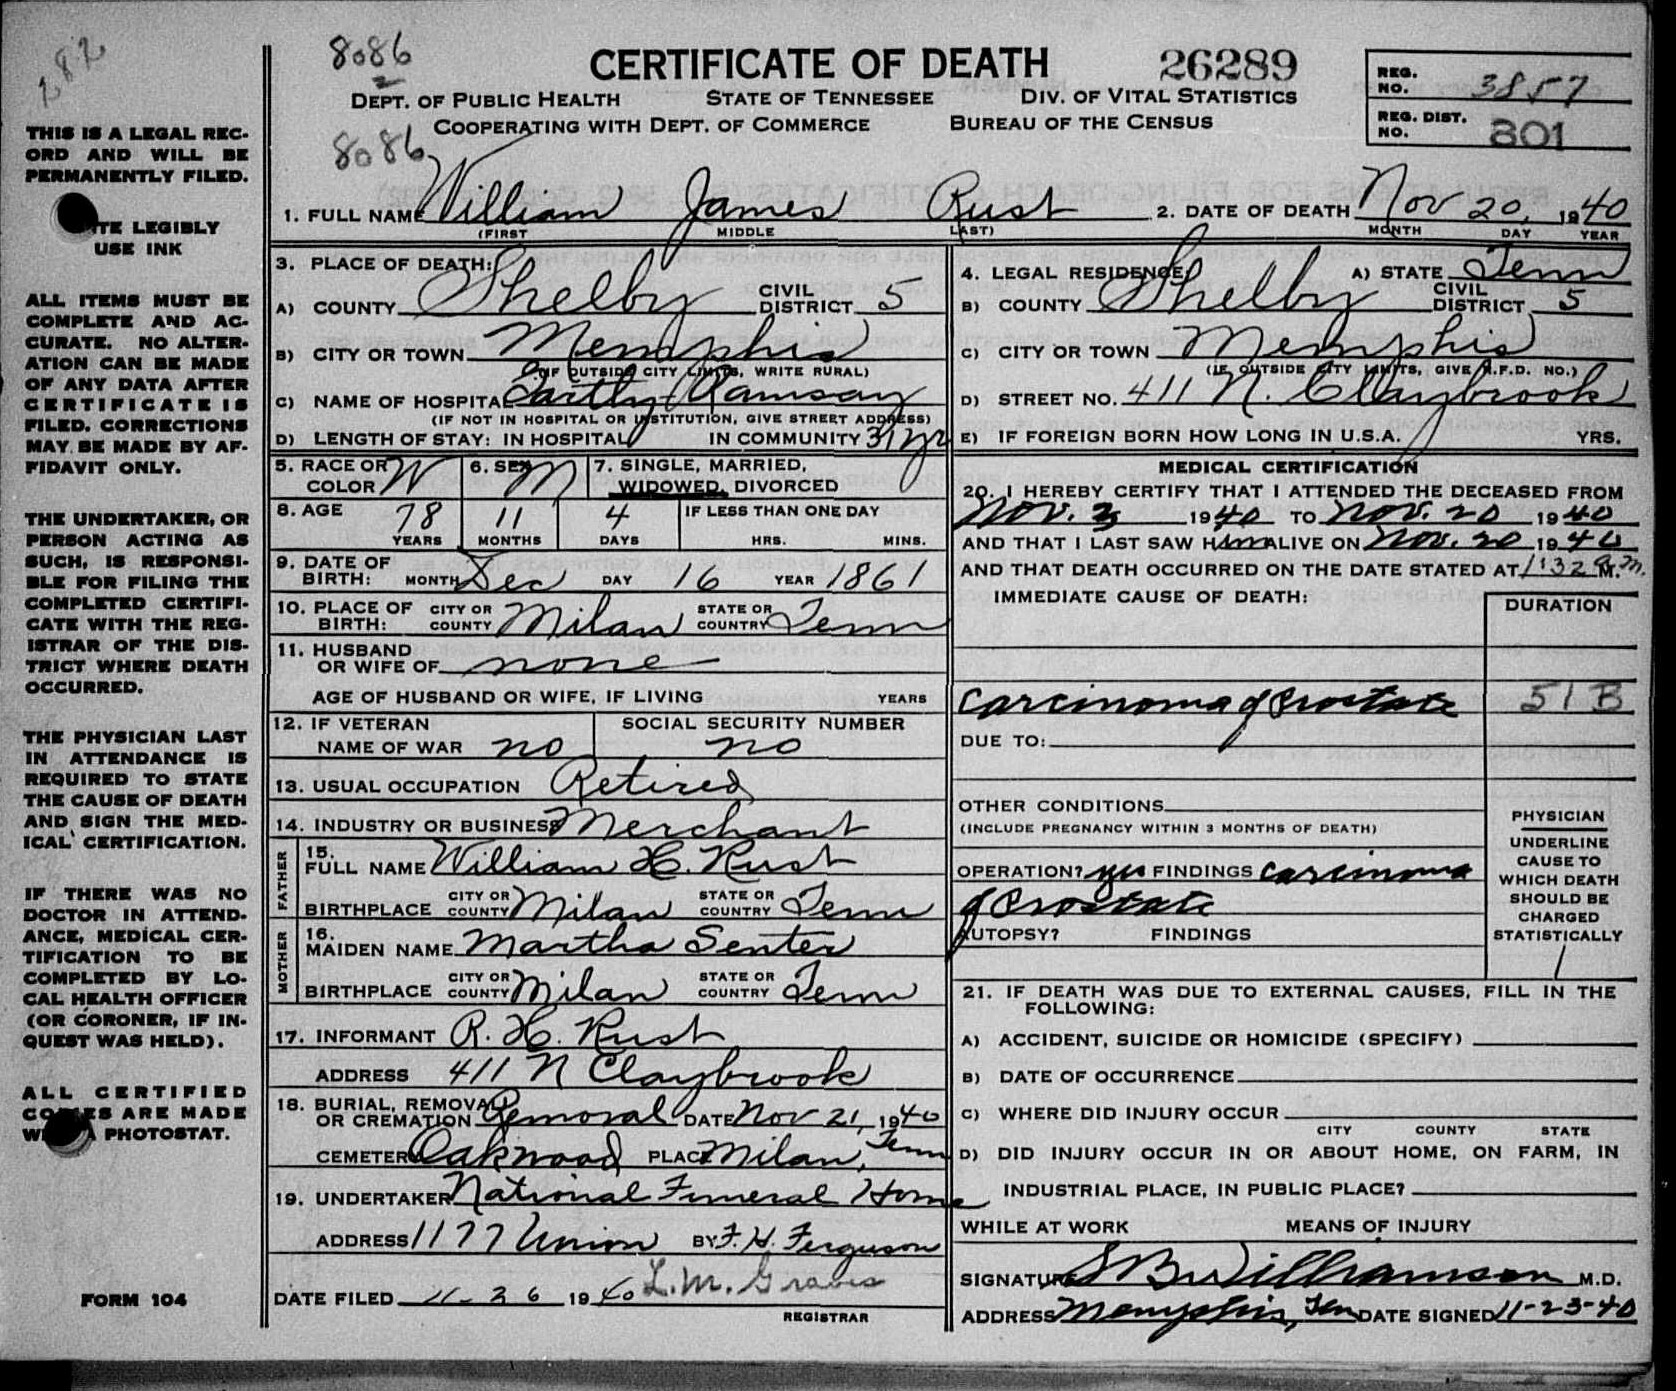 282
8086
2
CERTIFICATE OF DEATH 26289
REG. NO. 3857
DEPT. OF PUBLIC HEALTH STATE OF TENNESSEE DIV. OF VITAL STATISTICS
COOPERATING WITH DEPT. OF COMMERCE BUREAU OF THE CENSUS
REG. DIST. NO. 801
8086
THIS IS A LEGAL REC-
ORD AND WILL BE
PERMANENTLY FILED.
TE LEGIBLY
USE INK
ALL ITEMS MUST BE
COMPLETE AND AC-
CURATE. NO ALTER-
ATION CAN BE MADE
OF ANY DATA AFTER
CERTIFICATE IS
FILED. CORRECTIONS
MAY BE MADE BY AF-
FIDAVIT ONLY.
THE UNDERTAKER, OR
PERSON ACTING AS
SUCH, IS RESPONSI-
BLE FOR FILING THE
COMPLETED CERTIFI-
CATE WITH THE REG-
ISTRAR OF THE DIS-
TRICT WHERE DEATH
OCCURRED.
THE PHYSICIAN LAST
IN ATTENDANCE IS
REQUIRED TO STATE
THE CAUSE OF DEATH
AND SIGN THE MED-
ICAL CERTIFICATION.
IF THERE WAS NO
DOCTOR IN ATTEND-
ANCE, MEDICAL CER-
TIFICATION TO BE
COMPLETED BY LO-
CAL HEALTH OFFICER
(OR CORONER, IF IN-
QUEST WAS HELD).
ALL CERTIFIED
COPIES ARE MADE
A PHOTOSTAT.
FORM 104
1. FULL NAME William James Rust 2. DATE OF DEATH Nov 20, 1940
(FIRST MIDDLE LAST) MONTH DAY YEAR
3. PLACE OF DEATH:
A) COUNTY Shelby CIVIL DISTRICT 5
B) CITY OR TOWN Memphis
(IF OUTSIDE CITY LIMITS, WRITE RURAL)
C) NAME OF HOSPITAL Gartly-Ramsay
(IF NOT IN HOSPITAL OR INSTITUTION, GIVE STREET ADDRESS)
D) LENGTH OF STAY: IN HOSPITAL IN COMMUNITY 31 yr
5. RACE OR COLOR W 6. SEX M 7. SINGLE, MARRIED,
WIDOWED, DIVORCED
8. AGE 78 11 4 IF LESS THAN ONE DAY
YEARS MONTHS DAYS HRS. MINS.
9. DATE OF BIRTH: MONTH Dec DAY 16 YEAR 1861
10. PLACE OF BIRTH: CITY OR COUNTY Milan STATE OR COUNTRY Tenn
11. HUSBAND
OR WIFE OF none
AGE OF HUSBAND OR WIFE, IF LIVING YEARS
12. IF VETERAN SOCIAL SECURITY NUMBER
NAME OF WAR no no
13. USUAL OCCUPATION Retired
14. INDUSTRY OR BUSINESS Merchant
FATHER
15.
FULL NAME William H. Rust
BIRTHPLACE CITY OR COUNTY Milan STATE OR COUNTRY Tenn
MOTHER
16.
MAIDEN NAME Martha Senter
BIRTHPLACE CITY OR COUNTY Milan STATE OR COUNTRY Tenn
17. INFORMANT R. H. Rust
ADDRESS 411 N Claybrook
18. BURIAL, REMOVAL
OR CREMATION Removal DATE Nov 21, 1940
CEMETERY Oakwood PLACE Milan, Tenn
19. UNDERTAKER National Funeral Home
ADDRESS 1177 Union BY F. H. Ferguson
DATE FILED 11-26 1940 L. M. Graves
REGISTRAR
4. LEGAL RESIDENCE: A) STATE Tenn
B) COUNTY Shelby CIVIL DISTRICT 5
C) CITY OR TOWN Memphis
(IF OUTSIDE CITY LIMITS, GIVE R.F.D. NO.)
D) STREET NO. 411 N. Claybrook
E) IF FOREIGN BORN HOW LONG IN U.S.A. YRS.
MEDICAL CERTIFICATION
20. I HEREBY CERTIFY THAT I ATTENDED THE DECEASED FROM
Nov. 1940 TO Nov. 20 1940
AND THAT I LAST SAW HIM ALIVE ON Nov. 20 1940
AND THAT DEATH OCCURRED ON THE DATE STATED AT 1:32 M.
IMMEDIATE CAUSE OF DEATH: DURATION
Carcinoma of Prostate 51B
DUE TO:
OTHER CONDITIONS
(INCLUDE PREGNANCY WITHIN 3 MONTHS OF DEATH)
OPERATION? yes FINDINGS Carcinoma
of Prostate
AUTOPSY? FINDINGS
PHYSICIAN
UNDERLINE
CAUSE TO
WHICH DEATH
SHOULD BE
CHARGED
STATISTICALLY
1
21. IF DEATH WAS DUE TO EXTERNAL CAUSES, FILL IN THE
FOLLOWING:
A) ACCIDENT, SUICIDE OR HOMICIDE (SPECIFY)
B) DATE OF OCCURRENCE
C) WHERE DID INJURY OCCUR
CITY COUNTY STATE
D) DID INJURY OCCUR IN OR ABOUT HOME, ON FARM, IN
INDUSTRIAL PLACE, IN PUBLIC PLACE?
WHILE AT WORK MEANS OF INJURY
SIGNATURE SB Williamson M.D.
ADDRESS Memphis, Ten DATE SIGNED 11-23-40